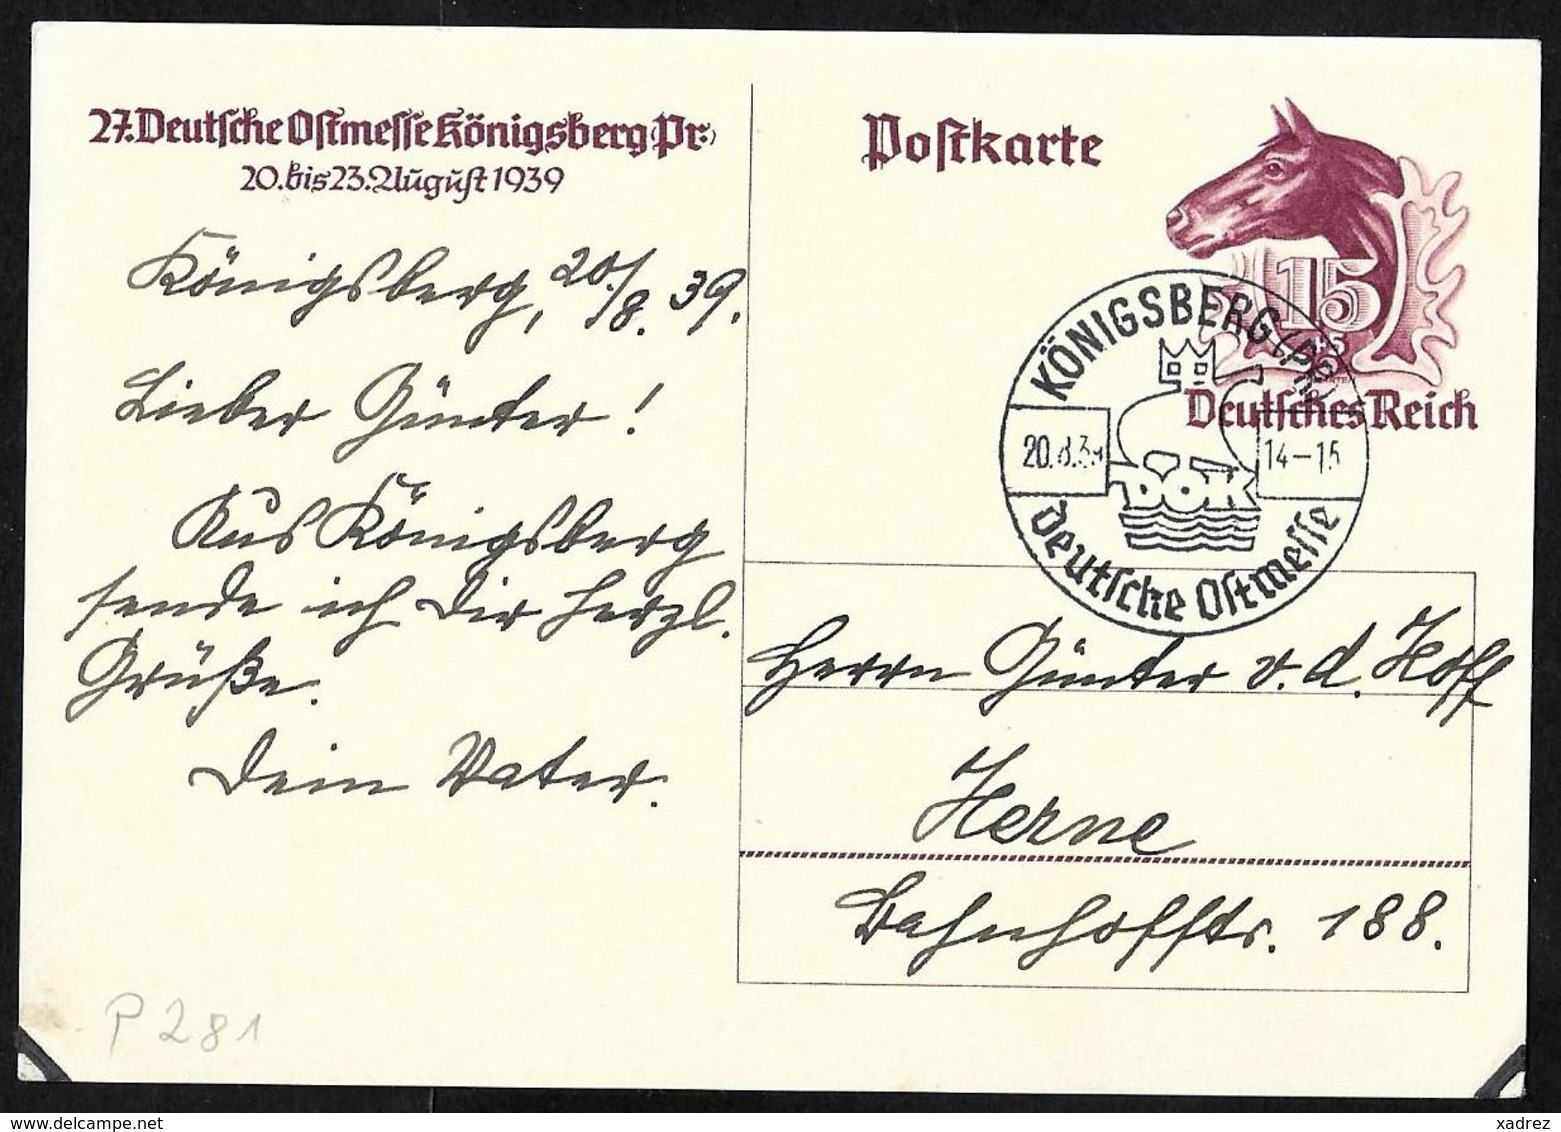 27. Deutsche Ostmesse Königsberg (Pr.)
20. bis 23. August 1939
Königsberg, 20./8. 39.
Lieber Günter!
Aus Königsberg
sende ich Dir herzl.
Grüße.
Dein Vater.
P 281
Postkarte
15
Deutsches Reich
KÖNIGSBERG (PR)
20.8.39
14-15
DOK
Deutsche Ostmesse
Herrn Günter v. d. Hoff
Herne
Bahnhofstr. 188.
www.delcampe.net
xadrez